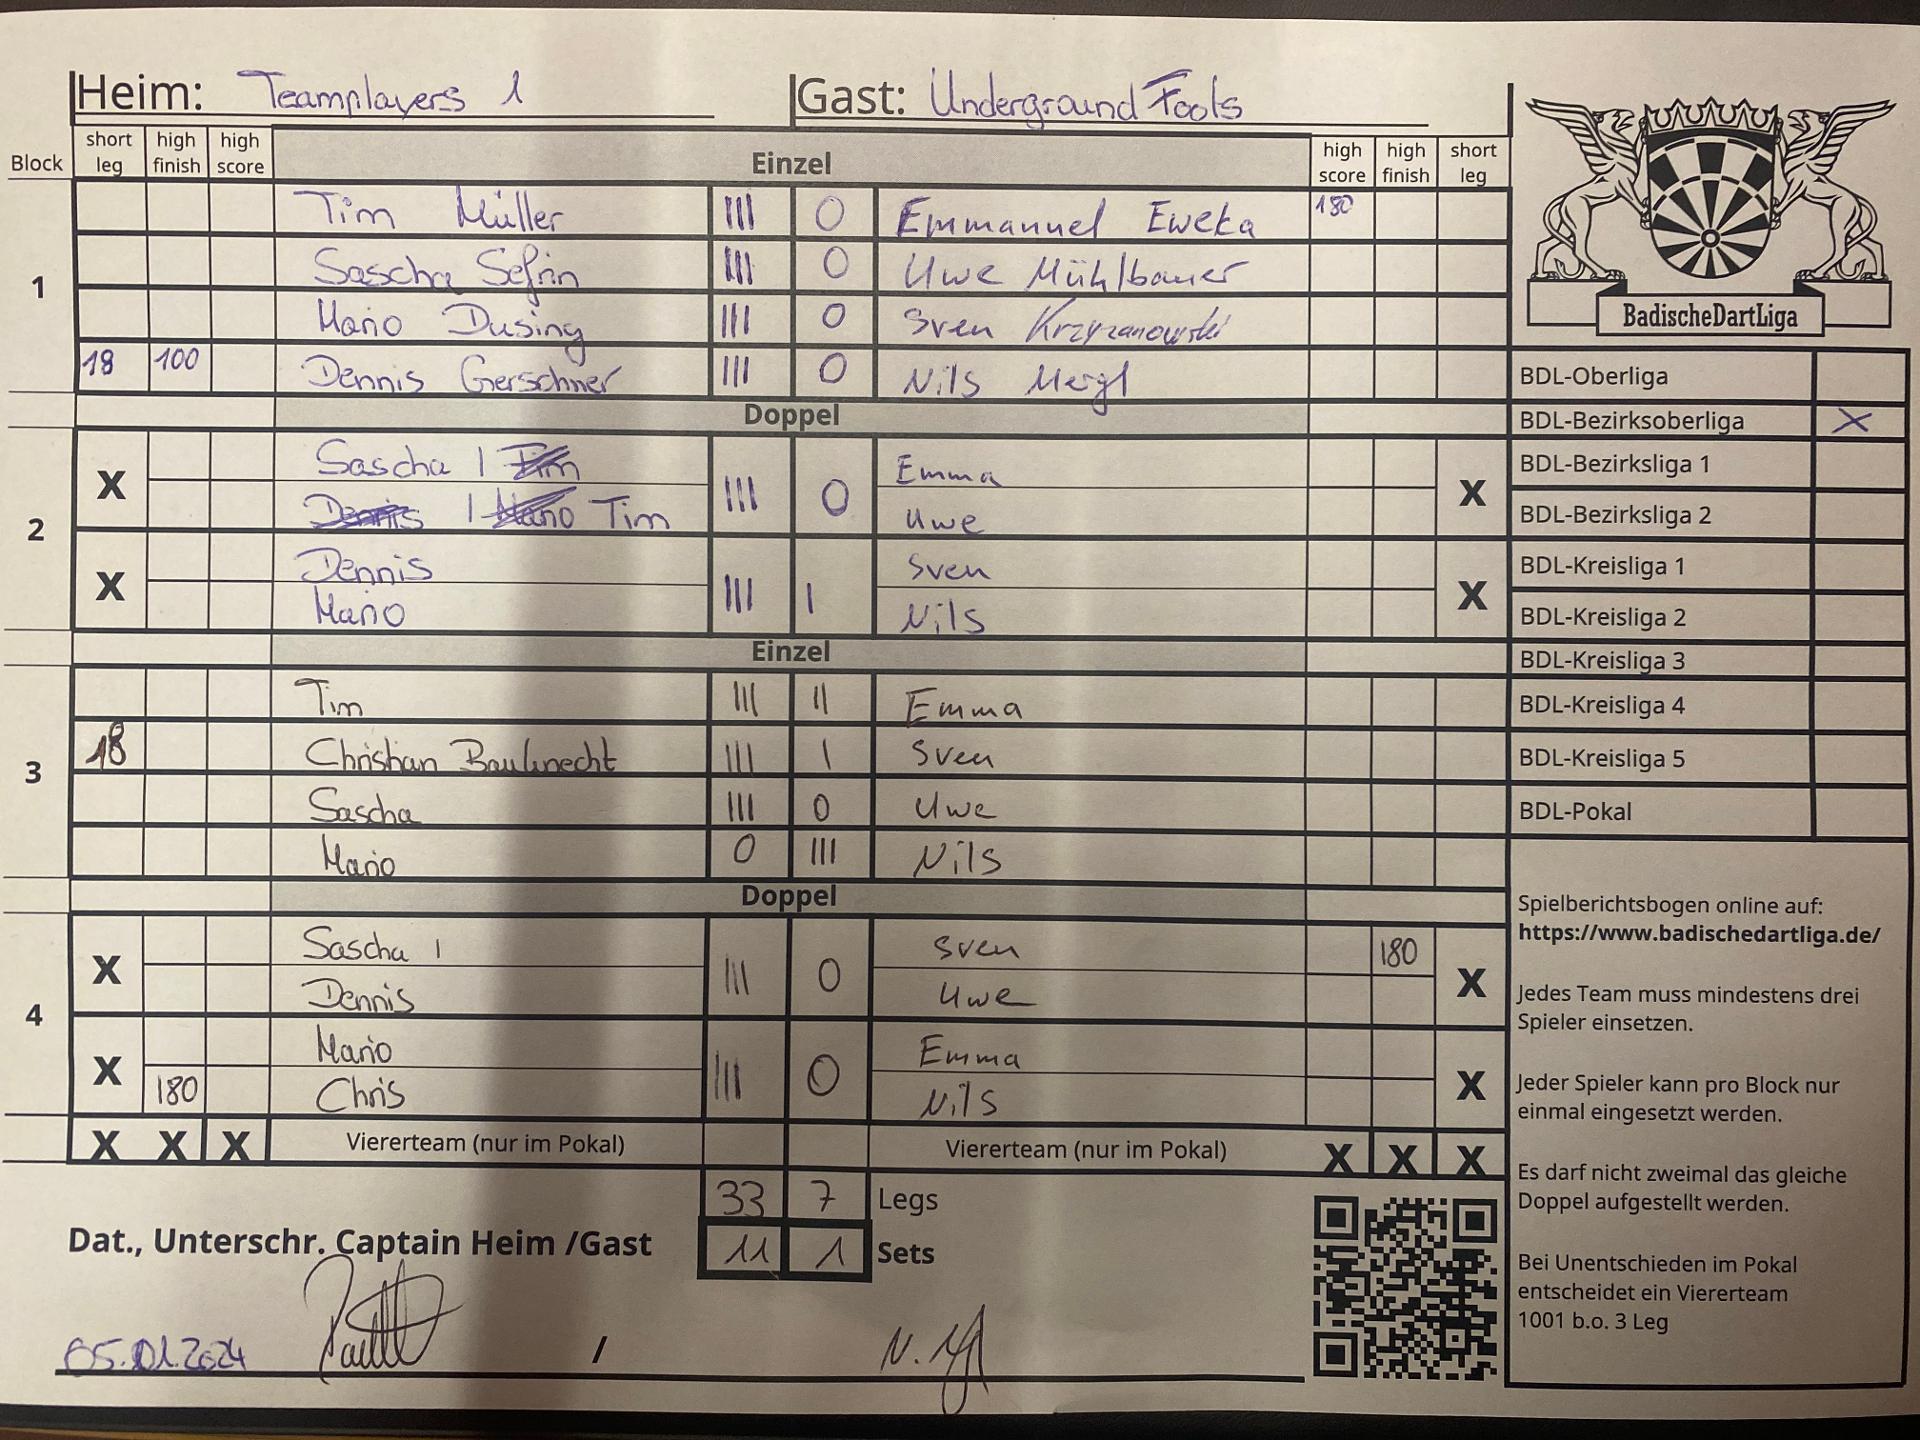 Heim: Teamplayers 1 Gast: Underground Fools
Block short leg high finish high score Einzel high score high finish short leg
1
Tim Müller III 0 Emmanuel Eweka 180
Sascha Sefrin III 0 Uwe Mühlbauer
Mario Dusing III 0 Sven Krzyzanowski
18 100 Dennis Gerschner III 0 Nils Mergl
Doppel
2
X Sascha / Tim III 0 Emma X
Dennis / Mario Tim Uwe
X Dennis III I Sven X
Mario Nils
Einzel
3
Tim III II Emma
18 Christian Bauknecht III I Sven
Sascha III 0 Uwe
Mario 0 III Nils
Doppel
4
X Sascha / III 0 Sven 180 X
Dennis Uwe
X Mario III 0 Emma X
180 Chris Nils
X X X Viererteam (nur im Pokal) Viererteam (nur im Pokal) X X X
33 7 Legs
Dat., Unterschr. Captain Heim /Gast 11 1 Sets
05.01.2024 /
BadischeDartLiga
BDL-Oberliga
BDL-Bezirksoberliga X
BDL-Bezirksliga 1
BDL-Bezirksliga 2
BDL-Kreisliga 1
BDL-Kreisliga 2
BDL-Kreisliga 3
BDL-Kreisliga 4
BDL-Kreisliga 5
BDL-Pokal
Spielberichtsbogen online auf:
https://www.badischedartliga.de/
Jedes Team muss mindestens drei
Spieler einsetzen.
Jeder Spieler kann pro Block nur
einmal eingesetzt werden.
Es darf nicht zweimal das gleiche
Doppel aufgestellt werden.
Bei Unentschieden im Pokal
entscheidet ein Viererteam
1001 b.o. 3 Leg